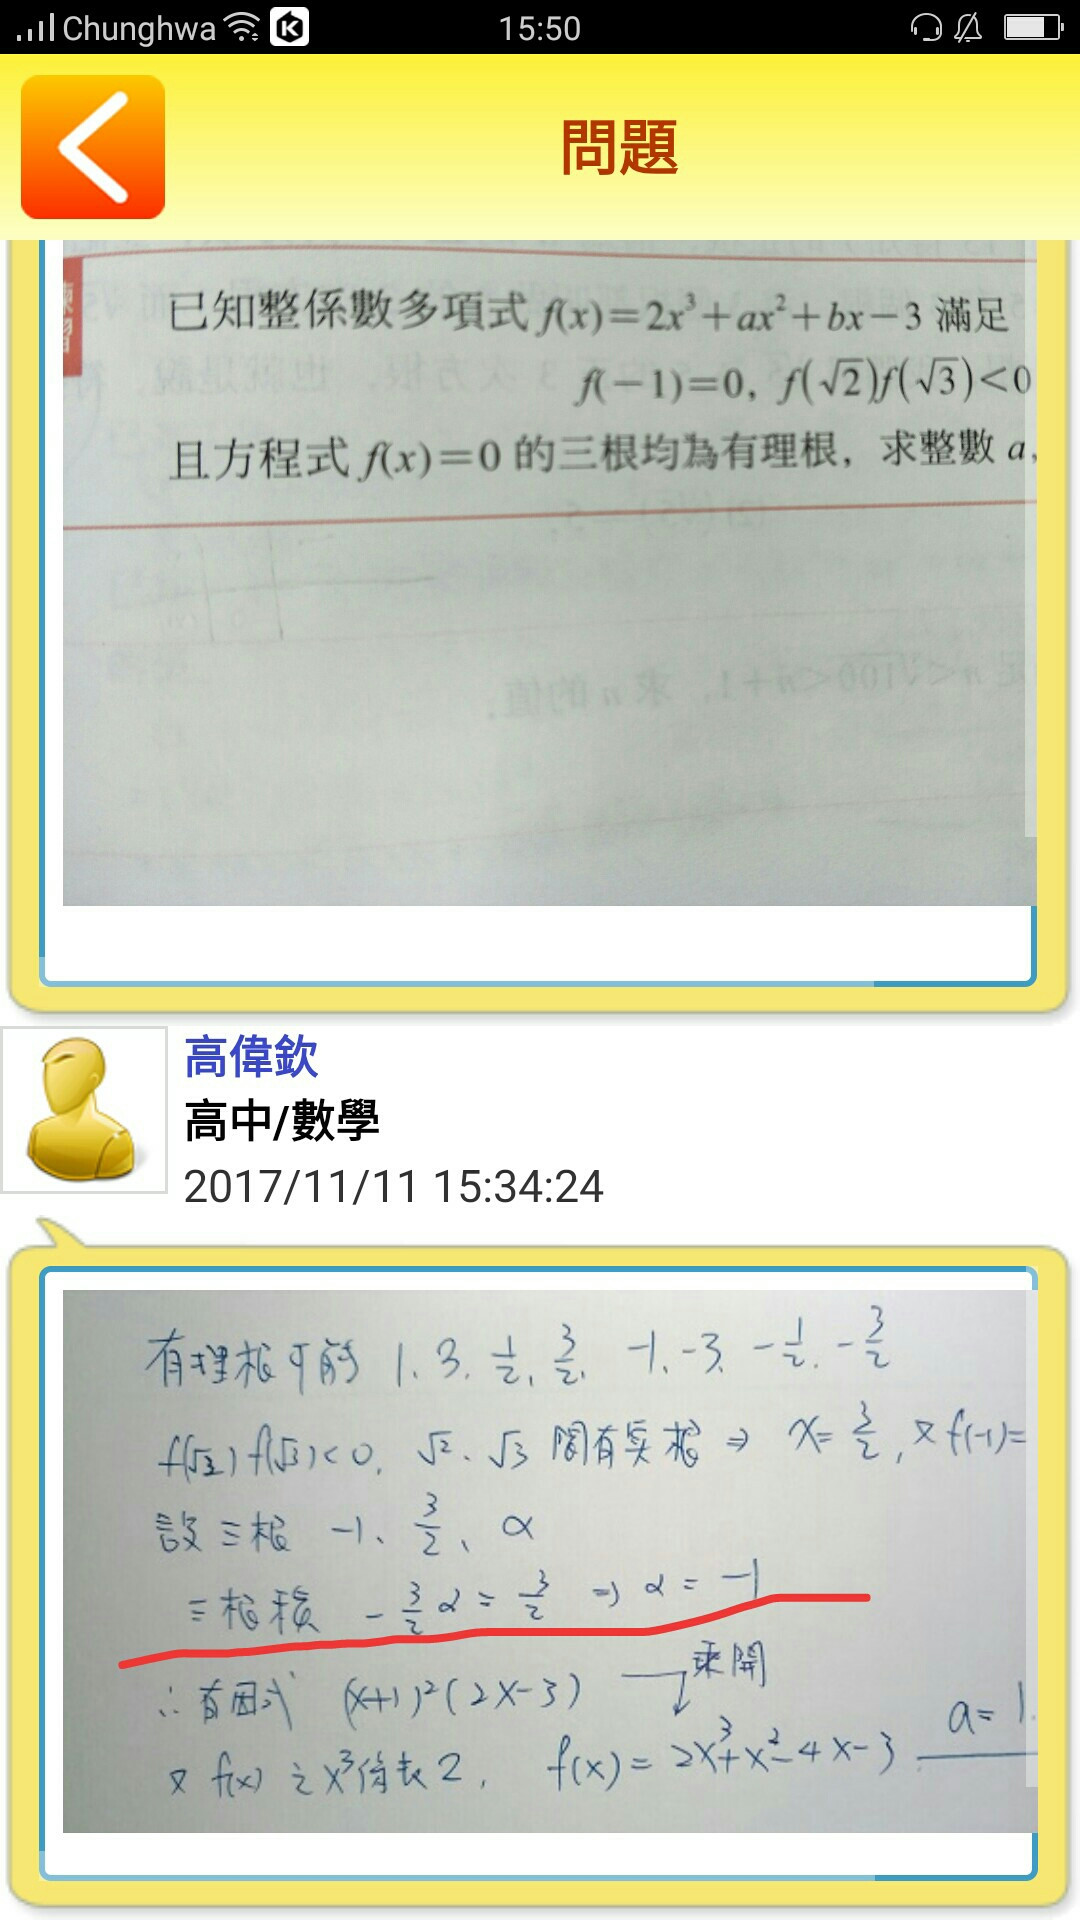 Chunghwa 15:50
問題
練習
已知整係數多項式 f(x)=2x³+ax²+bx-3 滿足
f(-1)=0, f(√2)f(√3)<0
且方程式 f(x)=0 的三根均為有理根, 求整數 a,
高偉欽
高中/數學
2017/11/11 15:34:24
有理根可能 1、3、1/2、3/2、-1、-3、-1/2、-3/2
f(√2) f(√3)<0, √2、√3 間有實根 ⇒ x=3/2, 又 f(-1)=
設三根 -1、3/2、α
三根積 -3/2 α = 3/2 ⇒ α = -1
∴ 有因式 (x+1)²(2x-3) 乘開
又 f(x) 之 x³ 係數 2, f(x)= 2x³+x²-4x-3 a=1.